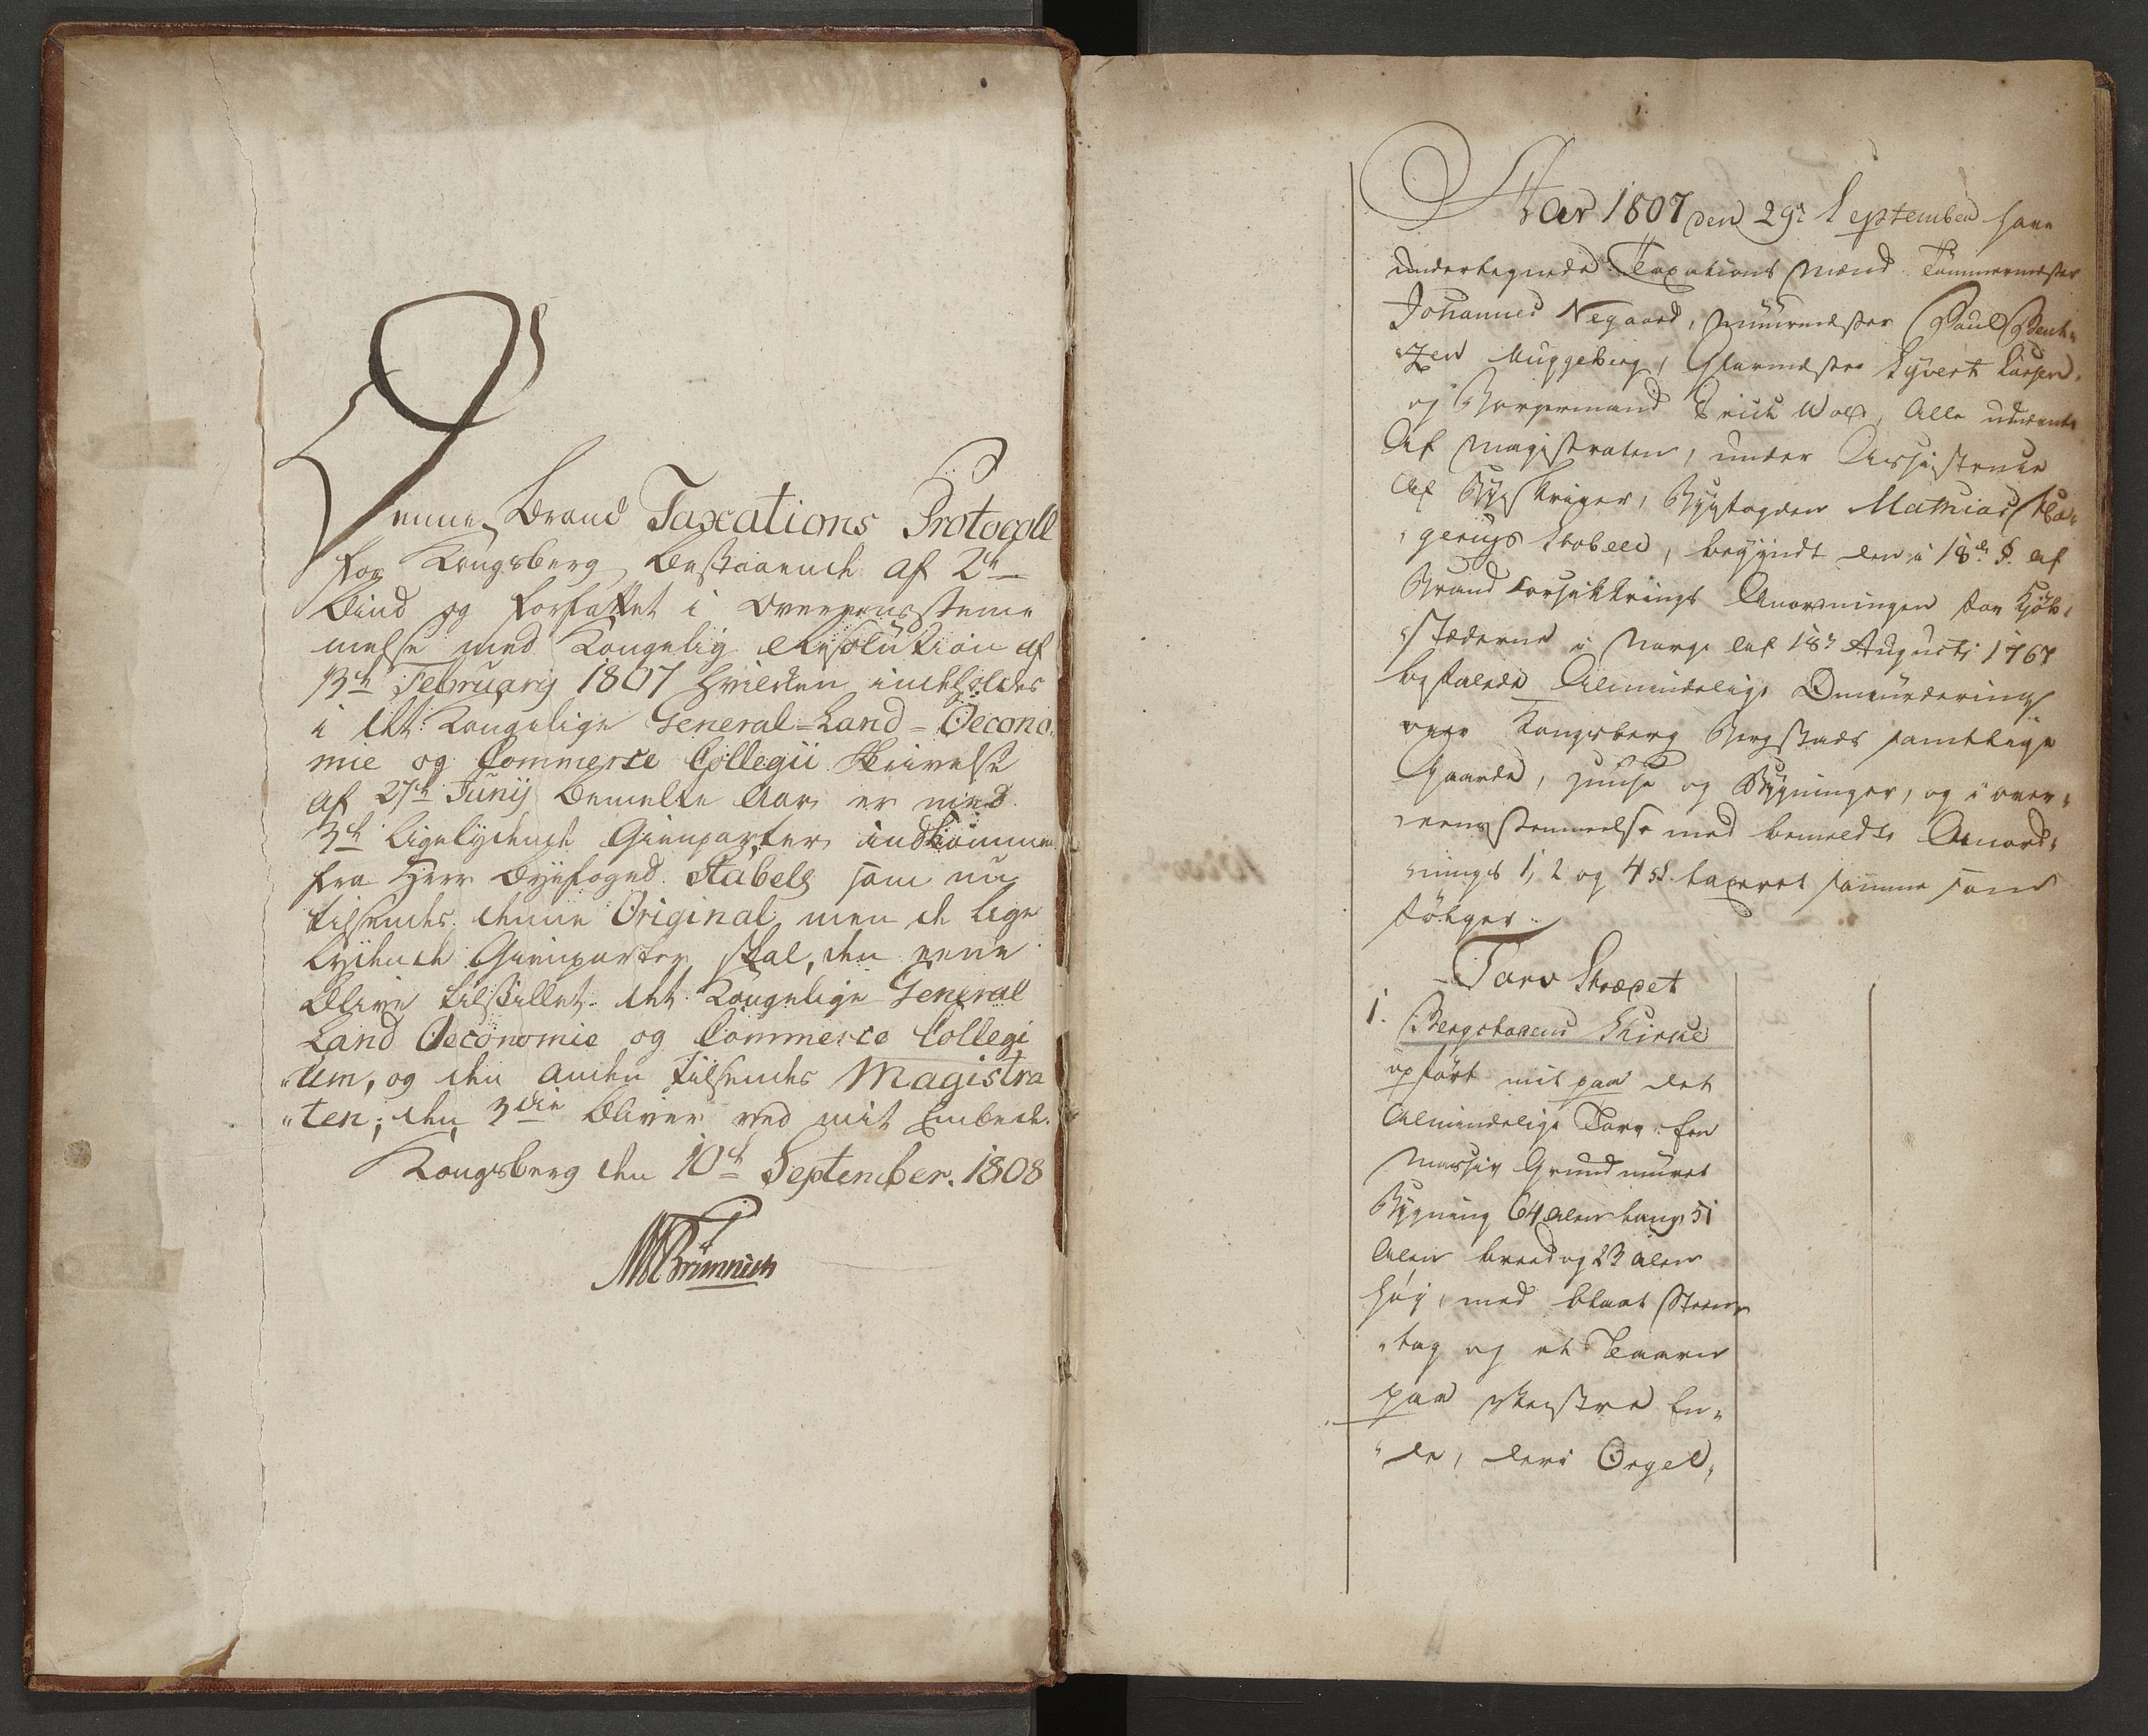 Denne Brand Taxations Protocoll
for Kongsberg bestaaende af 2de
Bind og forfattet i Overeensstem
melse med Kongelig Resolution af
13de Februarij 1807 hvilken indeholdes
i det Kongelige General-Land-Oecono
mie og Commerce Collegii Skrivelse
af 27de Junij bemelte Aar er med
3de ligelydende Gienparter indkommen
fra Herr Byefoged Stabell som nu
tilsendes denne Original men de lige
lydende Gienparter skal, den eene
blive tilstillet det Kongelige General
Land Oeconomie og Commerce Collegi
"um, og den anden tilsendes Magistra
"ten; den 3die bliver ved mit Embede.
Kongsberg den 10de September. 1808
MTBrünnich
1.
Aar 1807 den 29de September have
undertegnede Taxations Mænd Tømmermester
Johannes Negaard, Muurmester Paul Bent-
zen Muggeberg, Glarmester Syvert Larsen,
og Borgermand Erich Wold, Alle udnævnte
Af Magistraten, under Assistence
Af Byeskriver, Byefogden Mathias
Stobell, begyndt den i 18de §. af
Brand Forsikkrings Anordningen for Kjøb-
stæderne i Norge af 18de Augusti 1767
befalede Almindelige Omvurdering
over Kongsberg Bergstads samtlige
Gaarde, Huuse og Bygninger, og i over-
eensstemmelse med bemeldte Anord-
nings 1, 2 og 4 §. taxeret samme som
følger.
Torv Strædet
1. Bergstadens Kirke
opført mit paa det
Almindelige Torv. En
Massiv Grundmuret
Bygning 64 Alen lang 51
Alen breed og 23 Alen
høy, med blaat Steen-
"tag og et Taarn
paa Vestre En-
"de, deri Orgel,